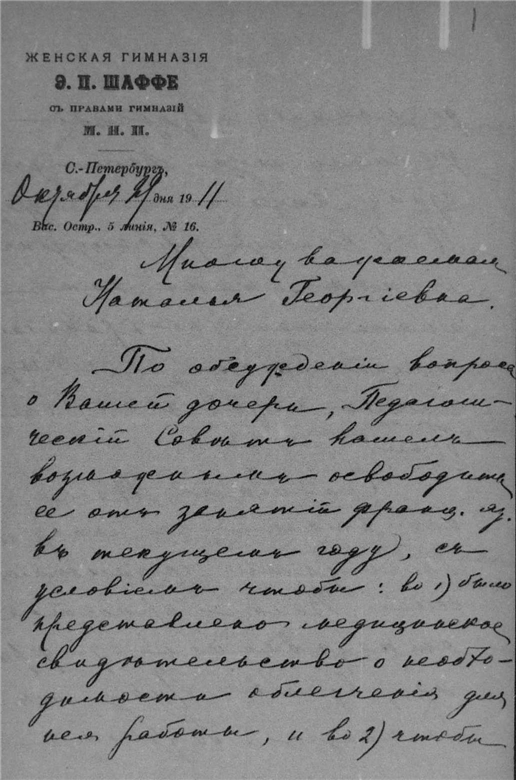 1
ЖЕНСКАЯ ГИМНАЗІЯ
Э. П. ШАФФЕ
СЪ ПРАВАМИ ГИМНАЗІЙ
М. Н. П.
С.-Петербургъ,
Октября дня 1911
Вас. Остр., 5 линія, № 16.
Многоуважаемая
Наталья Георгіевна.
По обсужденіи вопроса
о Вашей дочери, Педагоги-
ческій Совѣтъ нашелъ
возможнымъ освободить
ее отъ занятій франц. яз.
въ текущемъ году, съ
условіемъ чтобы: во 1) было
представлено медицинское
свидѣтельство о необхо-
димости облегченія для
нея работы, и во 2) чтобы